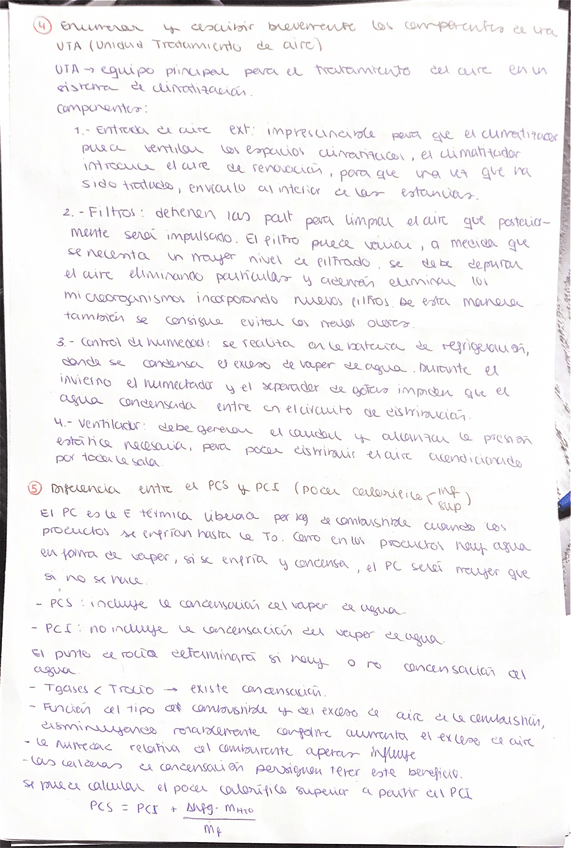 ④ Enumerar y describir brevemente los componentes de una
UTA (Unidad Tratamiento de aire)
UTA → equipo principal para el tratamiento del aire en un
sistema de climatización.
Componentes:
1.- Entrada de aire ext: imprescindible para que el climatizador
pueda ventilar los espacios climatizados, el climatizador
introduce el aire de renovación, para que una vez que ha
sido tratado, enviarlo al interior de las estancias.
2.- Filtros: detienen las part para limpiar el aire que posterior-
mente será impulsado. El filtro puede variar, a medida que
se necesita un mayor nivel de filtrado. se debe depurar
el aire eliminando partículas y además eliminar los
microorganismos incorporando nuevos filtros. De esta manera
también se consigue evitar los malos olores.
3.- Control de humedad: se realiza en la batería de refrigeración,
donde se condensa el exceso de vapor de agua. Durante el
invierno el humectador y el separador de gotas impiden que el
agua condensada entre en el circuito de distribución.
4.- Ventilador: debe generar el caudal y alcanzar la presión
estática necesaria, para poder distribuir el aire acondicionado
por toda la sala.
⑤ Diferencia entre el PCS y PCI (poder calorífico inf
sup)
El PC es la E térmica liberada por kg de combustible cuando los
productos se enfrían hasta la To. Como en los productos hay agua
en forma de vapor, si se enfría y condensa, el PC será mayor que
si no se hace.
- PCS: incluye la condensación del vapor de agua
- PCI: no incluye la condensación del vapor de agua.
El punto de rocío determinará si hay o no condensación del
agua.
- Tgases < Trocío → existe condensación.
- Función del tipo del combustible y del exceso de aire de la combustión,
disminuyendo notablemente conforme aumenta el exceso de aire
- la humedad relativa del comburente apenas influye
- las calderas de condensación persiguen tener este beneficio.
Se puede calcular el poder calorífico superior a partir del PCI
PCS = PCI + Δhfg · mH2O
mf